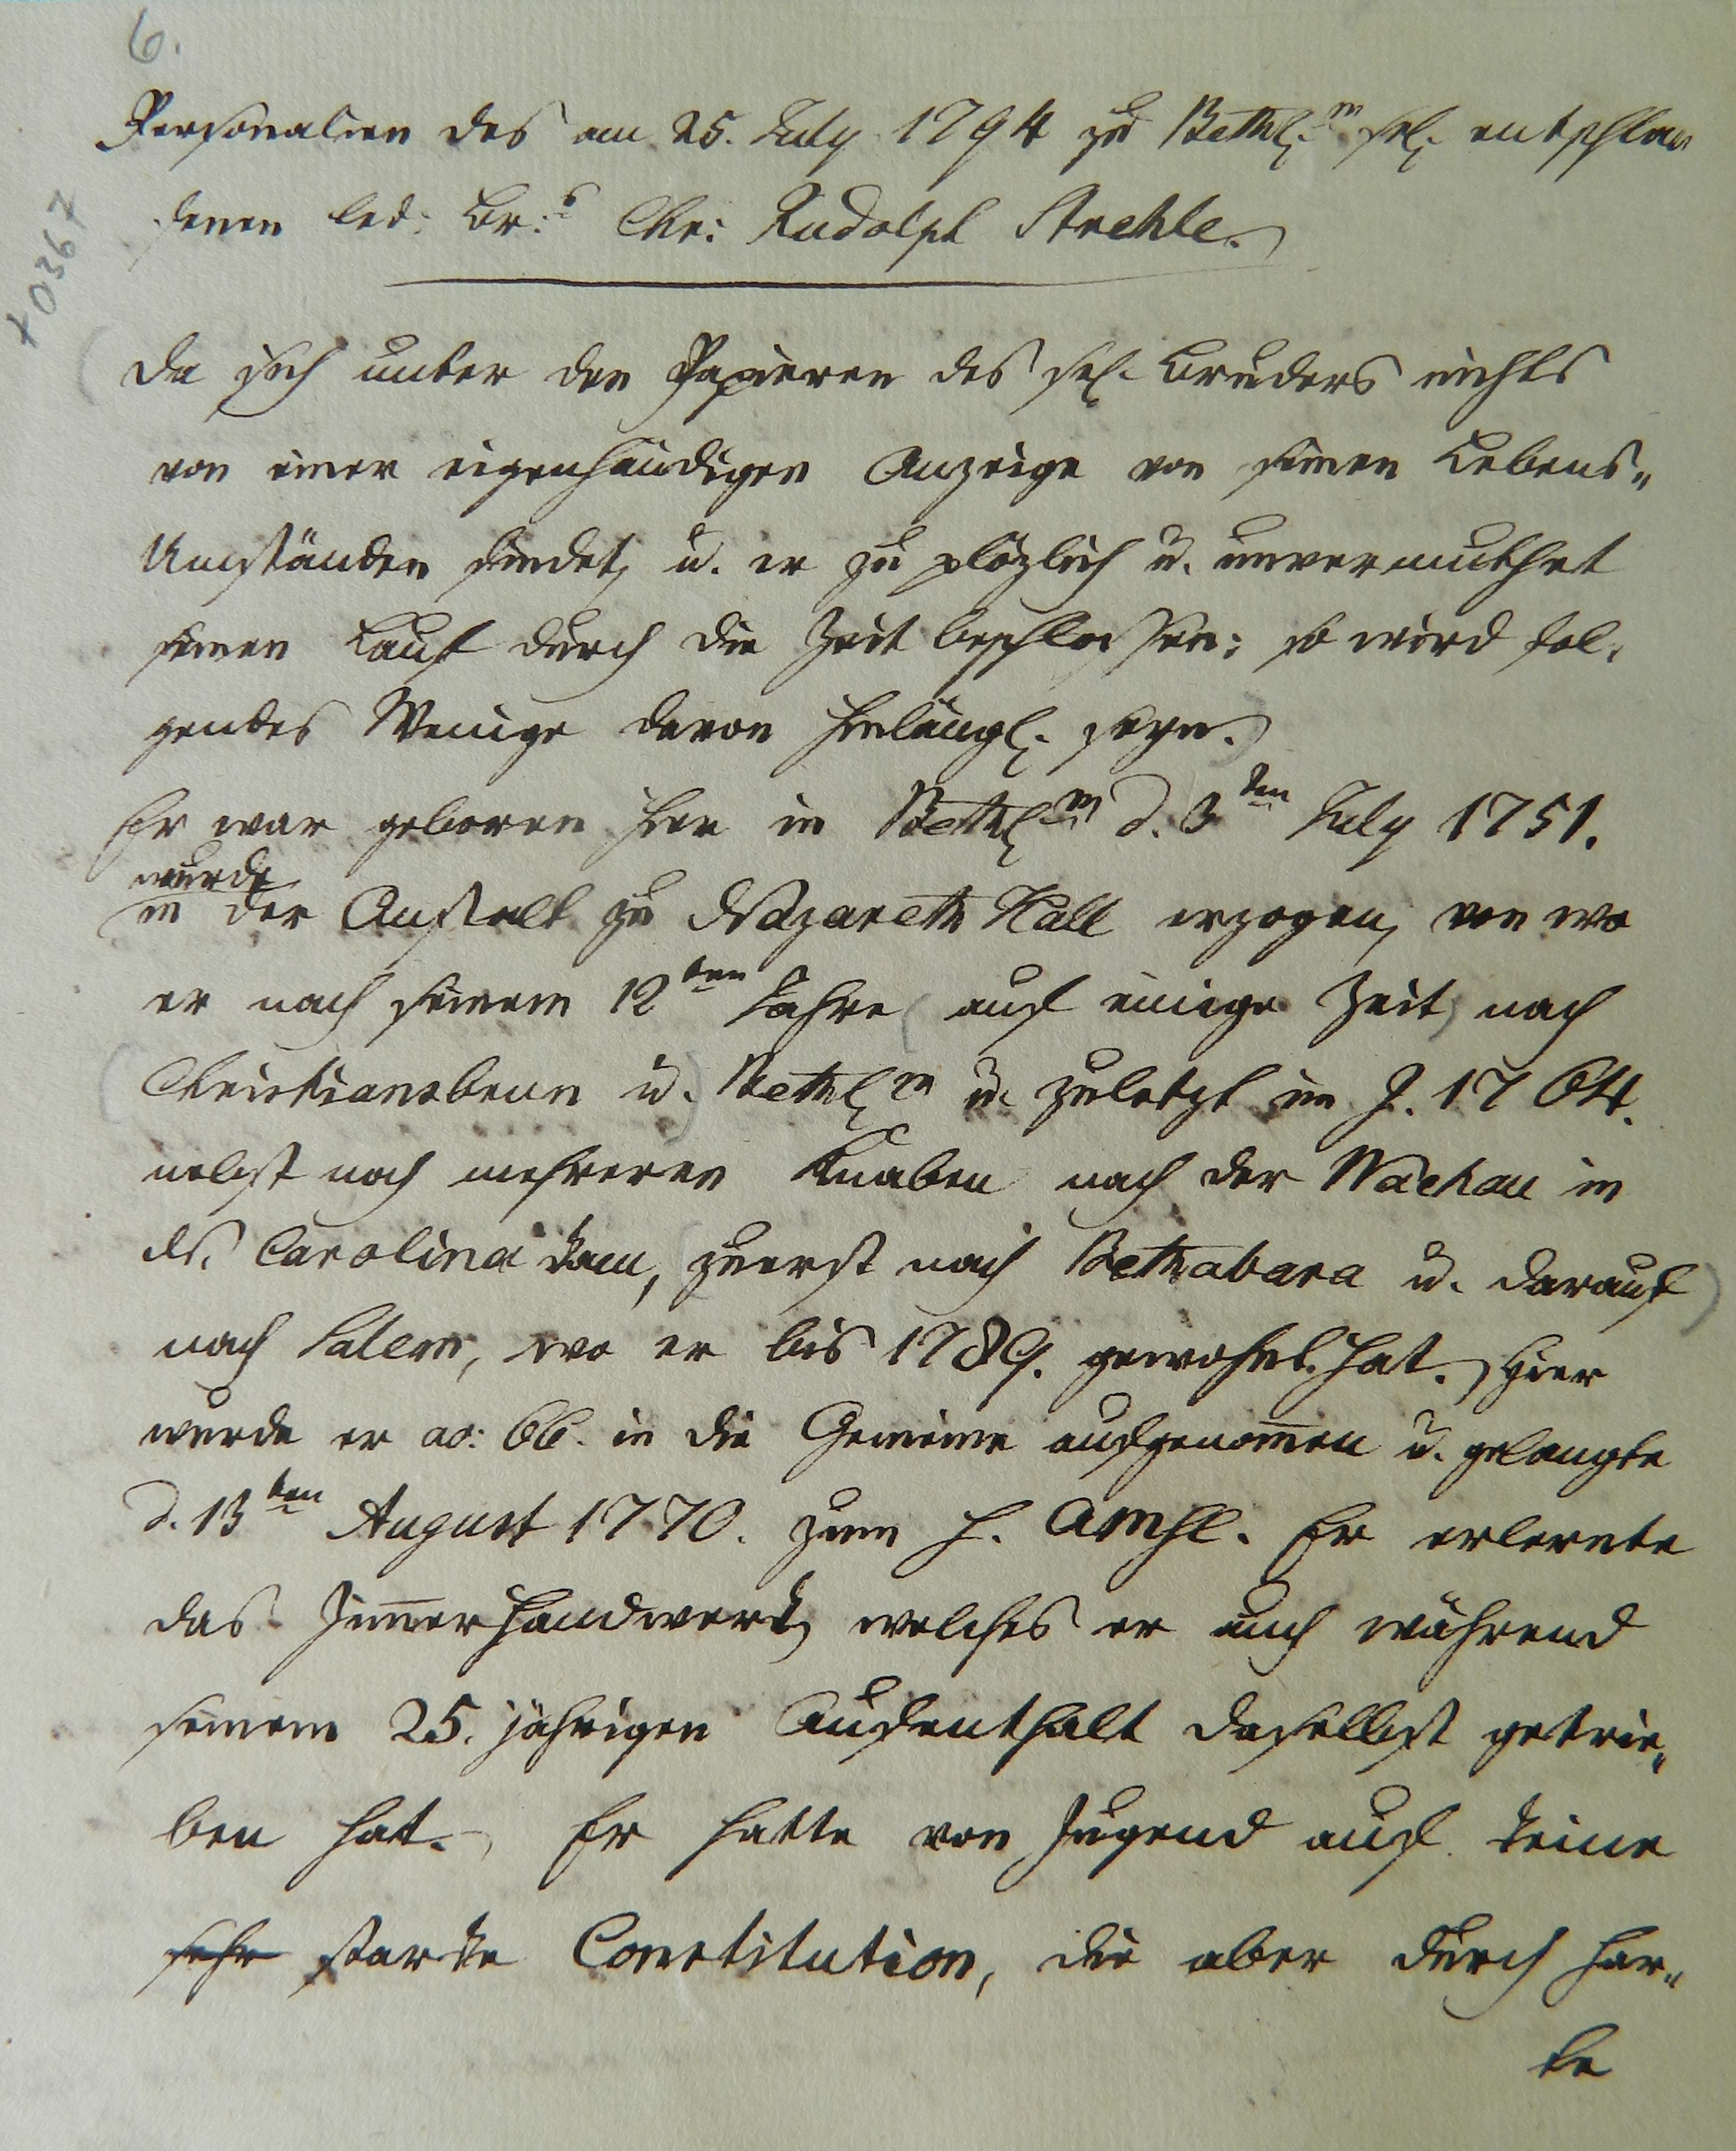 6.
Personalien des am 25. July 1794 zu Bethl.m sel. entschla
fenen led. Br.s Chr: Rudolph Strehle.
+0367
Da sich unter den Papieren des sel. Bruders nichts
von einer eigenhändigen Anzeige von seinen Lebens-
Umständen findet, u. er zu plözlich u. unvermuthet
seinen Lauf durch die Zeit beschlossen; so wird fol-
gendes Wenige davon hinlängl. seyn.
Er war geboren hier in Bethl.m d. 3ten July 1751.
wurde
in der Anstalt zu Nazareth Hall erzogen, von wo
er nach seinem 12ten Jahre (auf einige Zeit) nach
(Christiansbrun u.) Bethl.m u. zuletzt im J. 1764.
nebst noch mehreren Knaben nach der Wachau in
N. Carolina kam, (zuerst nach Bethabara u. darauf)
nach Salem, wo er bis 1789. gewohnt hat. Hier
wurde er ao: 66. in die Gemeine aufgenom̅en u. gelangte
d. 13ten August 1770. zum h. Amhl. Er erlernte
das Zim̅erhandwerk, welches er auch während
seinem 25. jährigen Aufenthalt daselbst getrie-
ben hat. Er hatte von Jugend auf keine
sehr starke Constitution, die aber durch har-
te